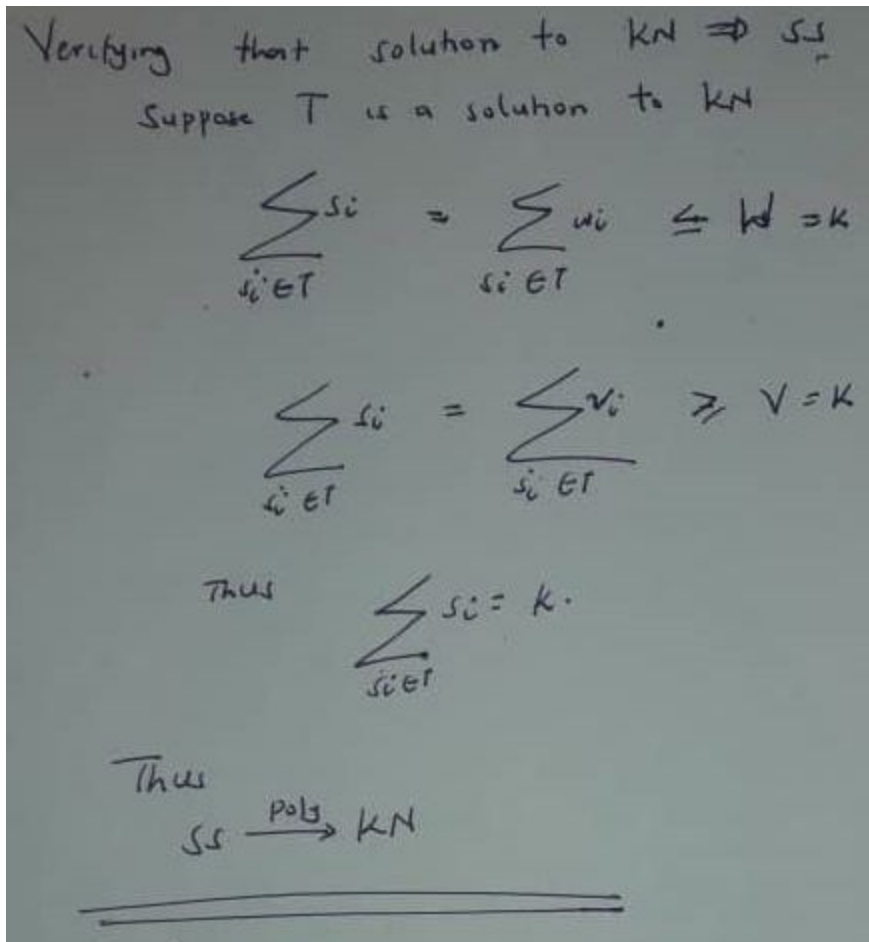 Verifying that solution to KN ⇒ SS
Suppose T is a solution to KN
∑ si = ∑ wi ≤ W = K
si ∈ T si ∈ T
∑ si = ∑ vi ≥ V = K
si ∈ T si ∈ T
Thus ∑ si = K.
si ∈ T
Thus
SS poly → KN